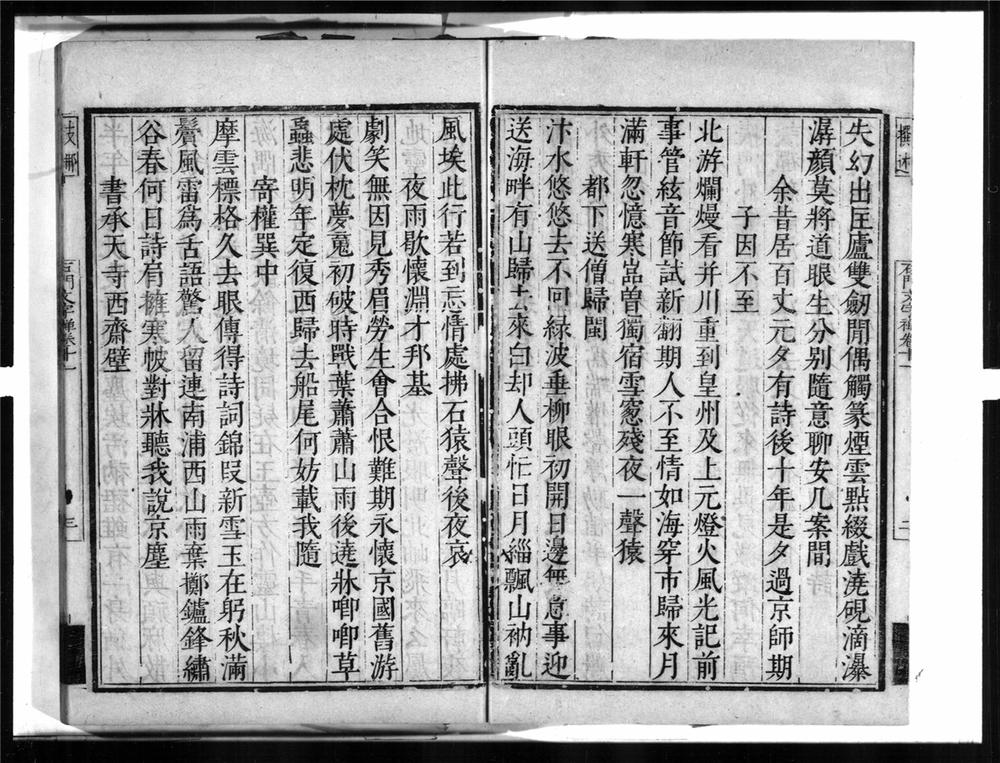 失幻出匡廬雙劒開偶觸篆煙雲點綴戲澆硯滴瀑
潺顏莫將道眼生分别隨意聊安几案間
余昔居百丈元夕有詩後十年是夕過京師期
子因不至
北游爛熳看并川重到皇州及上元燈火風光記前
事管絃音節試新翻期人不至情如海穿市歸來月
滿軒忽憶寒嵓曽獨宿雪窻殘夜一聲猿
都下送僧歸閩
汴水悠悠去不回緑波垂柳眼初開日邊無意事迎
送海畔有山歸去來白却人頭忙日月緇飄山衲亂
風埃此行若到忘情處拂石猿聲後夜哀
夜雨歇懷淵才邦基
劇笑無因見秀眉勞生會合恨難期永懷京國舊游
處伏枕夢䰟初破時戰葉蕭蕭山雨後遶牀喞喞草
蟲悲明年定復西歸去船尾何妨載我隨
寄權巽中
摩雲標格久去眼傳得詩詞錦段新雪玉在躬秋滿
鬢風雷爲舌語驚人留連南浦西山雨棄擲鑪鋒繡
谷春何日詩肩擁寒帔對牀聽我說京塵
書承天寺西齋壁
石門文字禪卷十一
三